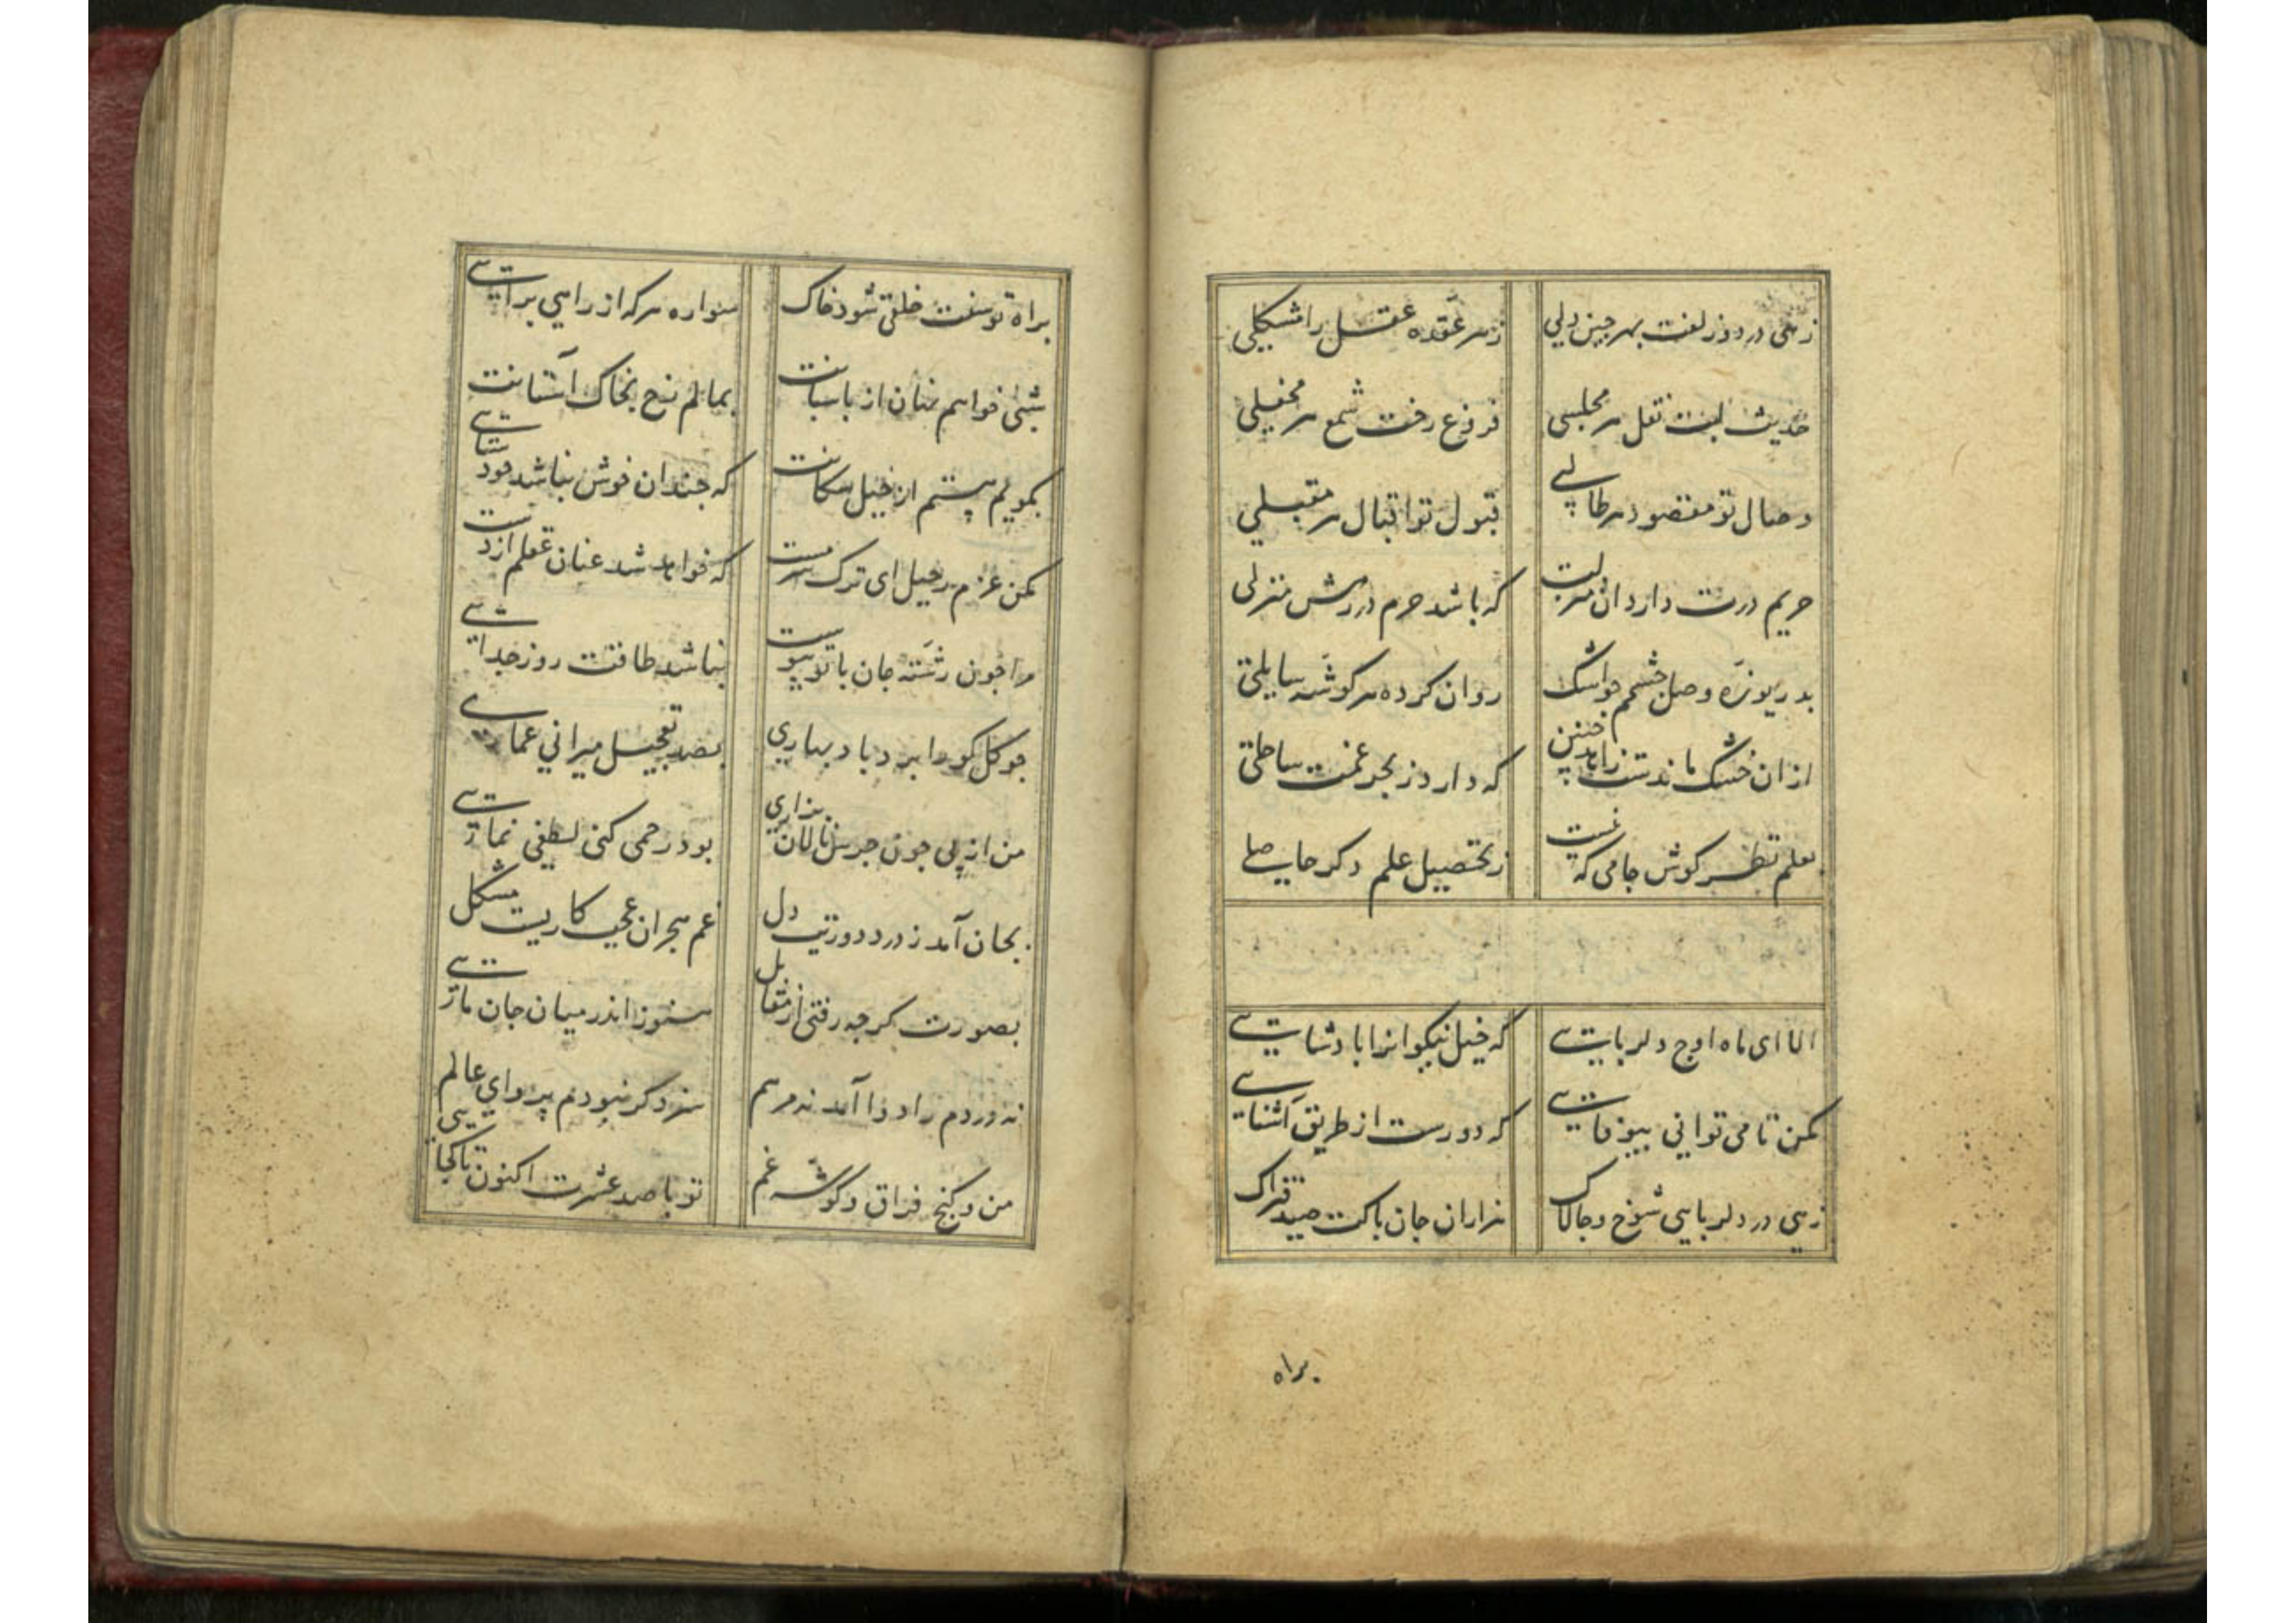 زهی در دو زلفت بهر چین دلی ز هر عقده عقل را مشکلی
حدیث لبت نقل هر مجلسی فروغ رخت شمع هر محفلی
وصال تو مقصود هر طالبی قبول تو اقبال هر مقبلی
حریم درت دارد آن منزلت که باشد حرم در رهش منزلی
بدریوزهٔ وصل چشمم چو اشک روان کرده هر گوشه سایلی
از ان خشک ماندست زاهد چنین که دارد ز بحر غمت ساحلی
بعلم نظر کوش جامی که نیست ز تحصیل علم دکر حاصلی
الا ای ماه اوج دلربایی که خیل نیکوانرا بادشایی
مکن تا می توانی بیوفایی که دورست از طریق آشنایی
زهی در دلربایی شوخ و جالاک هزاران جان باکت صید فتراک
براه
براه توسنت خلقی شود خاک سواره هر که از راهی برآیی
شبی خواهم نهان از باسبانت بمالم رخ بخاک آستانت
بمویم هستم از خیل سکانت که جندان خوش نباشد خودستایی
مکن عزم رحیل ای ترک سرمست که خواهد شد عنان عقلم از دست
مرا جون رشته جان با تو پیوست نباشد طاقت روز جدایی
جو کل کو را برد باد بهاری بصد تعجیل میرانی عماری
من از پی جون جرس نالان بزاری بود رحمی کنی لطفی نمایی
بجان آمد ز درد دوریت دل غم هجران عجب کاریست مشکل
بصورت کرجه رفتی از مقابل هنوز اندر میان جان مایی
نه دردم را دوا آمد نه مرهم سزد کر نبودم پروای عالم
من و کنج فراق و کوشه غم تو با صد عشرت اکنون تا کجایی